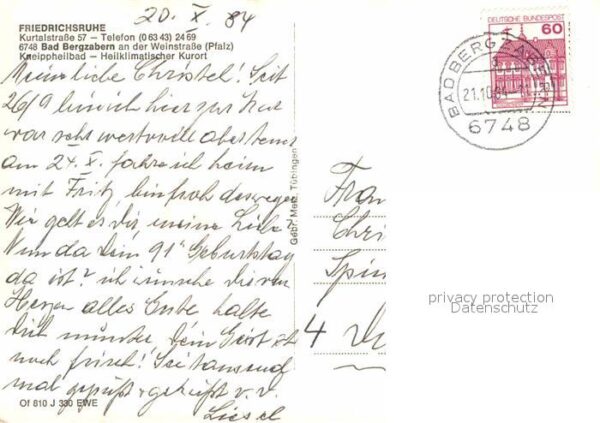 20. X. 84
FRIEDRICHSRUHE
Kurtalstraße 57 – Telefon (0 63 43) 24 69
6748 Bad Bergzabern an der Weinstraße (Pfalz)
Kneippheilbad – Heilklimatischer Kurort
Meine liebe Christel! Seit
26/9 bin ich hier zur Kur
war sehr wertvoll aber
am 24. X. fahre ich heim
mit Fritz, bin froh deswegen
Wie geht es dir meine Liebe
Nun da Dein 91. Geburtstag
da ist? ich wünsche dir von
Herzen alles Gute halte
Dich munter, Dein Geist ist
noch frisch! Sei tausend
mal gegrüßt + geküßt v. d.
Liesel
Of 810 J 330 EWE
Gebr. Metz, Tübingen
DEUTSCHE BUNDESPOST
60
BAD BERGZABERN
21.10.84
6748
Frau
Chri
Spin
4
privacy protection
Datenschutz